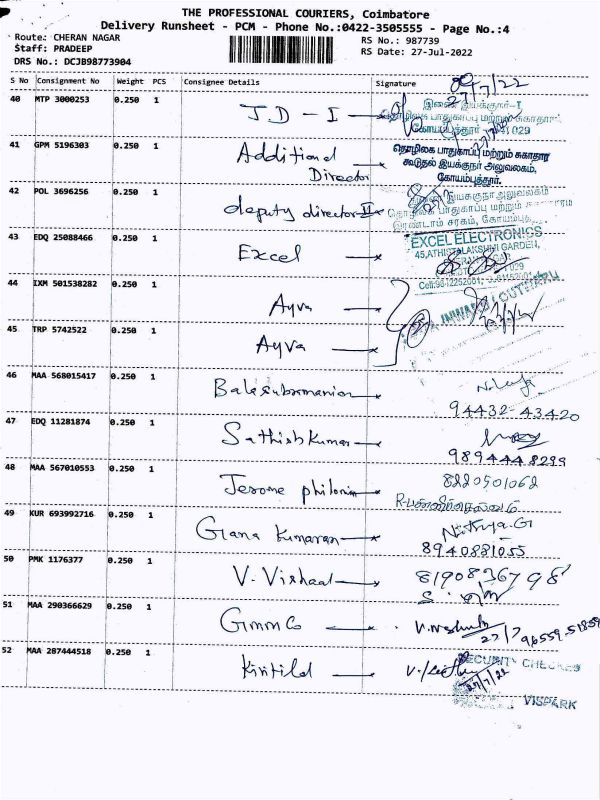 THE PROFESSIONAL COURIERS, Coimbatore
Delivery Runsheet - PCM - Phone No.:0422-3505555 - Page No.:4
Route: CHERAN NAGAR
RS No.: 987739
Staff: PRADEEP
RS Date: 27-Jul-2022
DRS No.: DCJB98773904
S No Consignment No Weight PCS Consignee Details Signature
27/7/22
40 MTP 3000253 0.250 1 JD - I
இணை இயக்குநர்-I
தொழிலக பாதுகாப்பு மற்றும் சுகாதார
கோயம்புத்தூர் 029
41 GPM 5196303 0.250 1 Additional Director
தொழிலக பாதுகாப்பு மற்றும் சுகாதார
கூடுதல் இயக்குநர் அலுவலகம்,
கோயம்புத்தூர்.
42 POL 3696256 0.250 1 deputy director II
இயக்குநர் அலுவலகம்
பாதுகாப்பு மற்றும்
இரண்டாம் சரகம்,
43 EDQ 25088466 0.250 1 Excel
EXCEL ELECTRONICS
45,ATHISTALAKSHMI GARDEN,
44 IXM 501538282 0.250 1 Ayva
45 TRP 5742522 0.250 1 Ayva
46 MAA 568015417 0.250 1 Balasubramanian
94432-43420
47 EDQ 11281874 0.250 1 Sathish Kumar
9894448299
48 MAA 567010553 0.250 1 Jerome
8220501062
49 KUR 693992716 0.250 1 Gana Kumaran
Nithya.G
8940881055
50 PMK 1176377 0.250 1 V. Vishaal
8190836798
51 MAA 290366629 0.250 1 Gmmco
27/7
96559-51859
52 MAA 287444518 0.250 1
SECURITY CHECKED
27/7/22
VISPARK